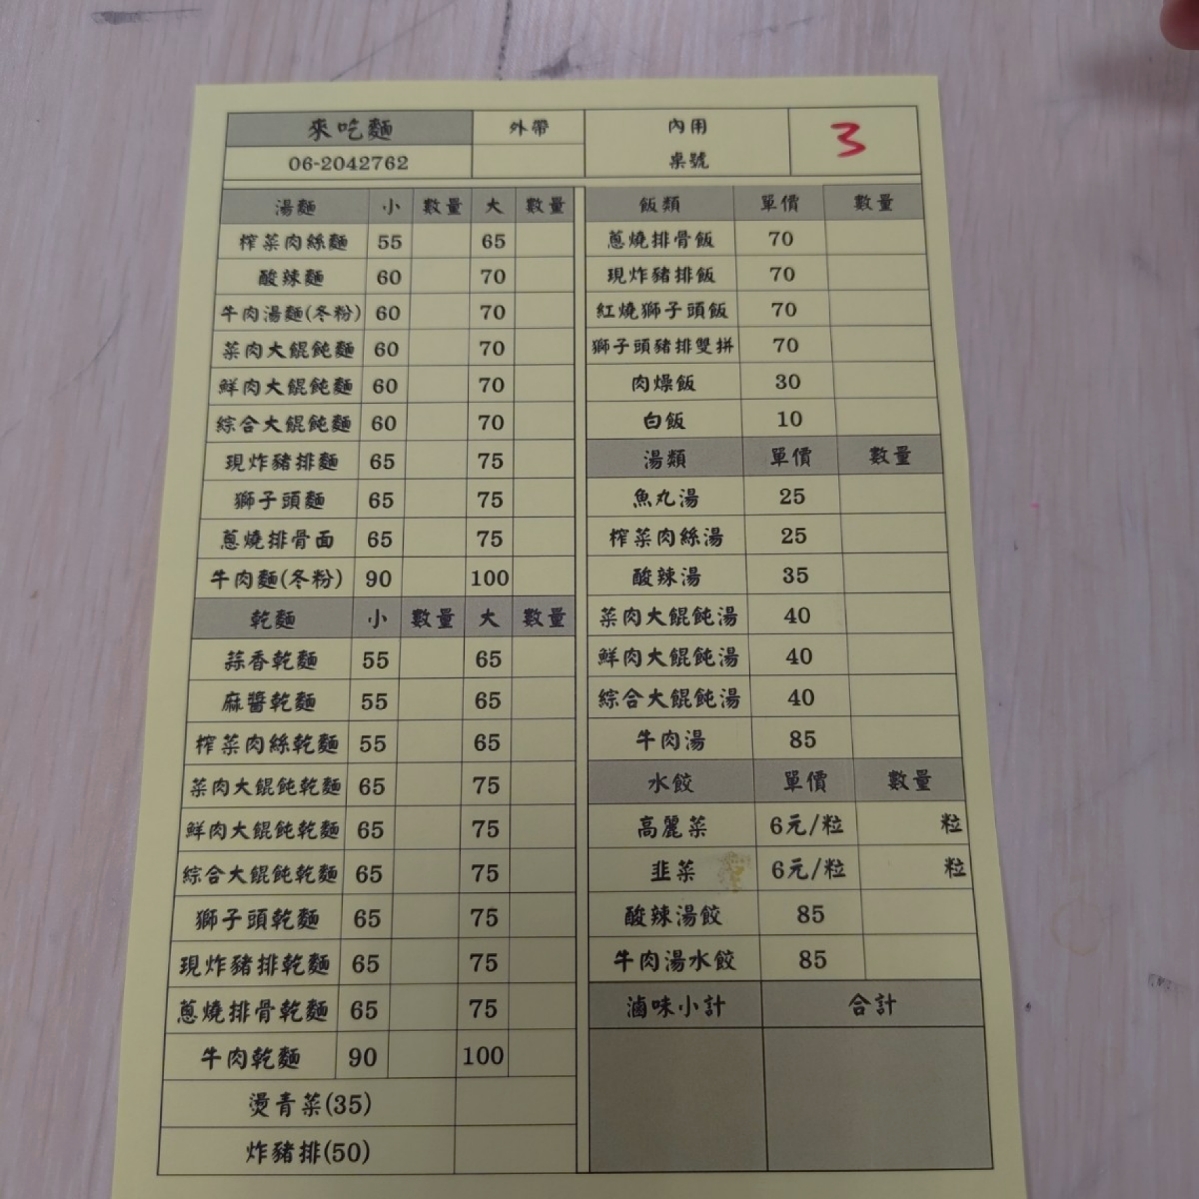 來吃麵 外帶 內用 3
06-2042762 桌號
湯麵 小 數量 大 數量
榨菜肉絲麵 55 65
酸辣麵 60 70
牛肉湯麵(冬粉) 60 70
菜肉大餛飩麵 60 70
鮮肉大餛飩麵 60 70
綜合大餛飩麵 60 70
現炸豬排麵 65 75
獅子頭麵 65 75
蔥燒排骨面 65 75
牛肉麵(冬粉) 90 100
乾麵 小 數量 大 數量
蒜香乾麵 55 65
麻醬乾麵 55 65
榨菜肉絲乾麵 55 65
菜肉大餛飩乾麵 65 75
鮮肉大餛飩乾麵 65 75
綜合大餛飩乾麵 65 75
獅子頭乾麵 65 75
現炸豬排乾麵 65 75
蔥燒排骨乾麵 65 75
牛肉乾麵 90 100
燙青菜(35)
炸豬排(50)
飯類 單價 數量
蔥燒排骨飯 70
現炸豬排飯 70
紅燒獅子頭飯 70
獅子頭豬排雙拼 70
肉燥飯 30
白飯 10
湯類 單價 數量
魚丸湯 25
榨菜肉絲湯 25
酸辣湯 35
菜肉大餛飩湯 40
鮮肉大餛飩湯 40
綜合大餛飩湯 40
牛肉湯 85
水餃 單價 數量
高麗菜 6元/粒 粒
韭菜 6元/粒 粒
酸辣湯餃 85
牛肉湯水餃 85
滷味小計 合計